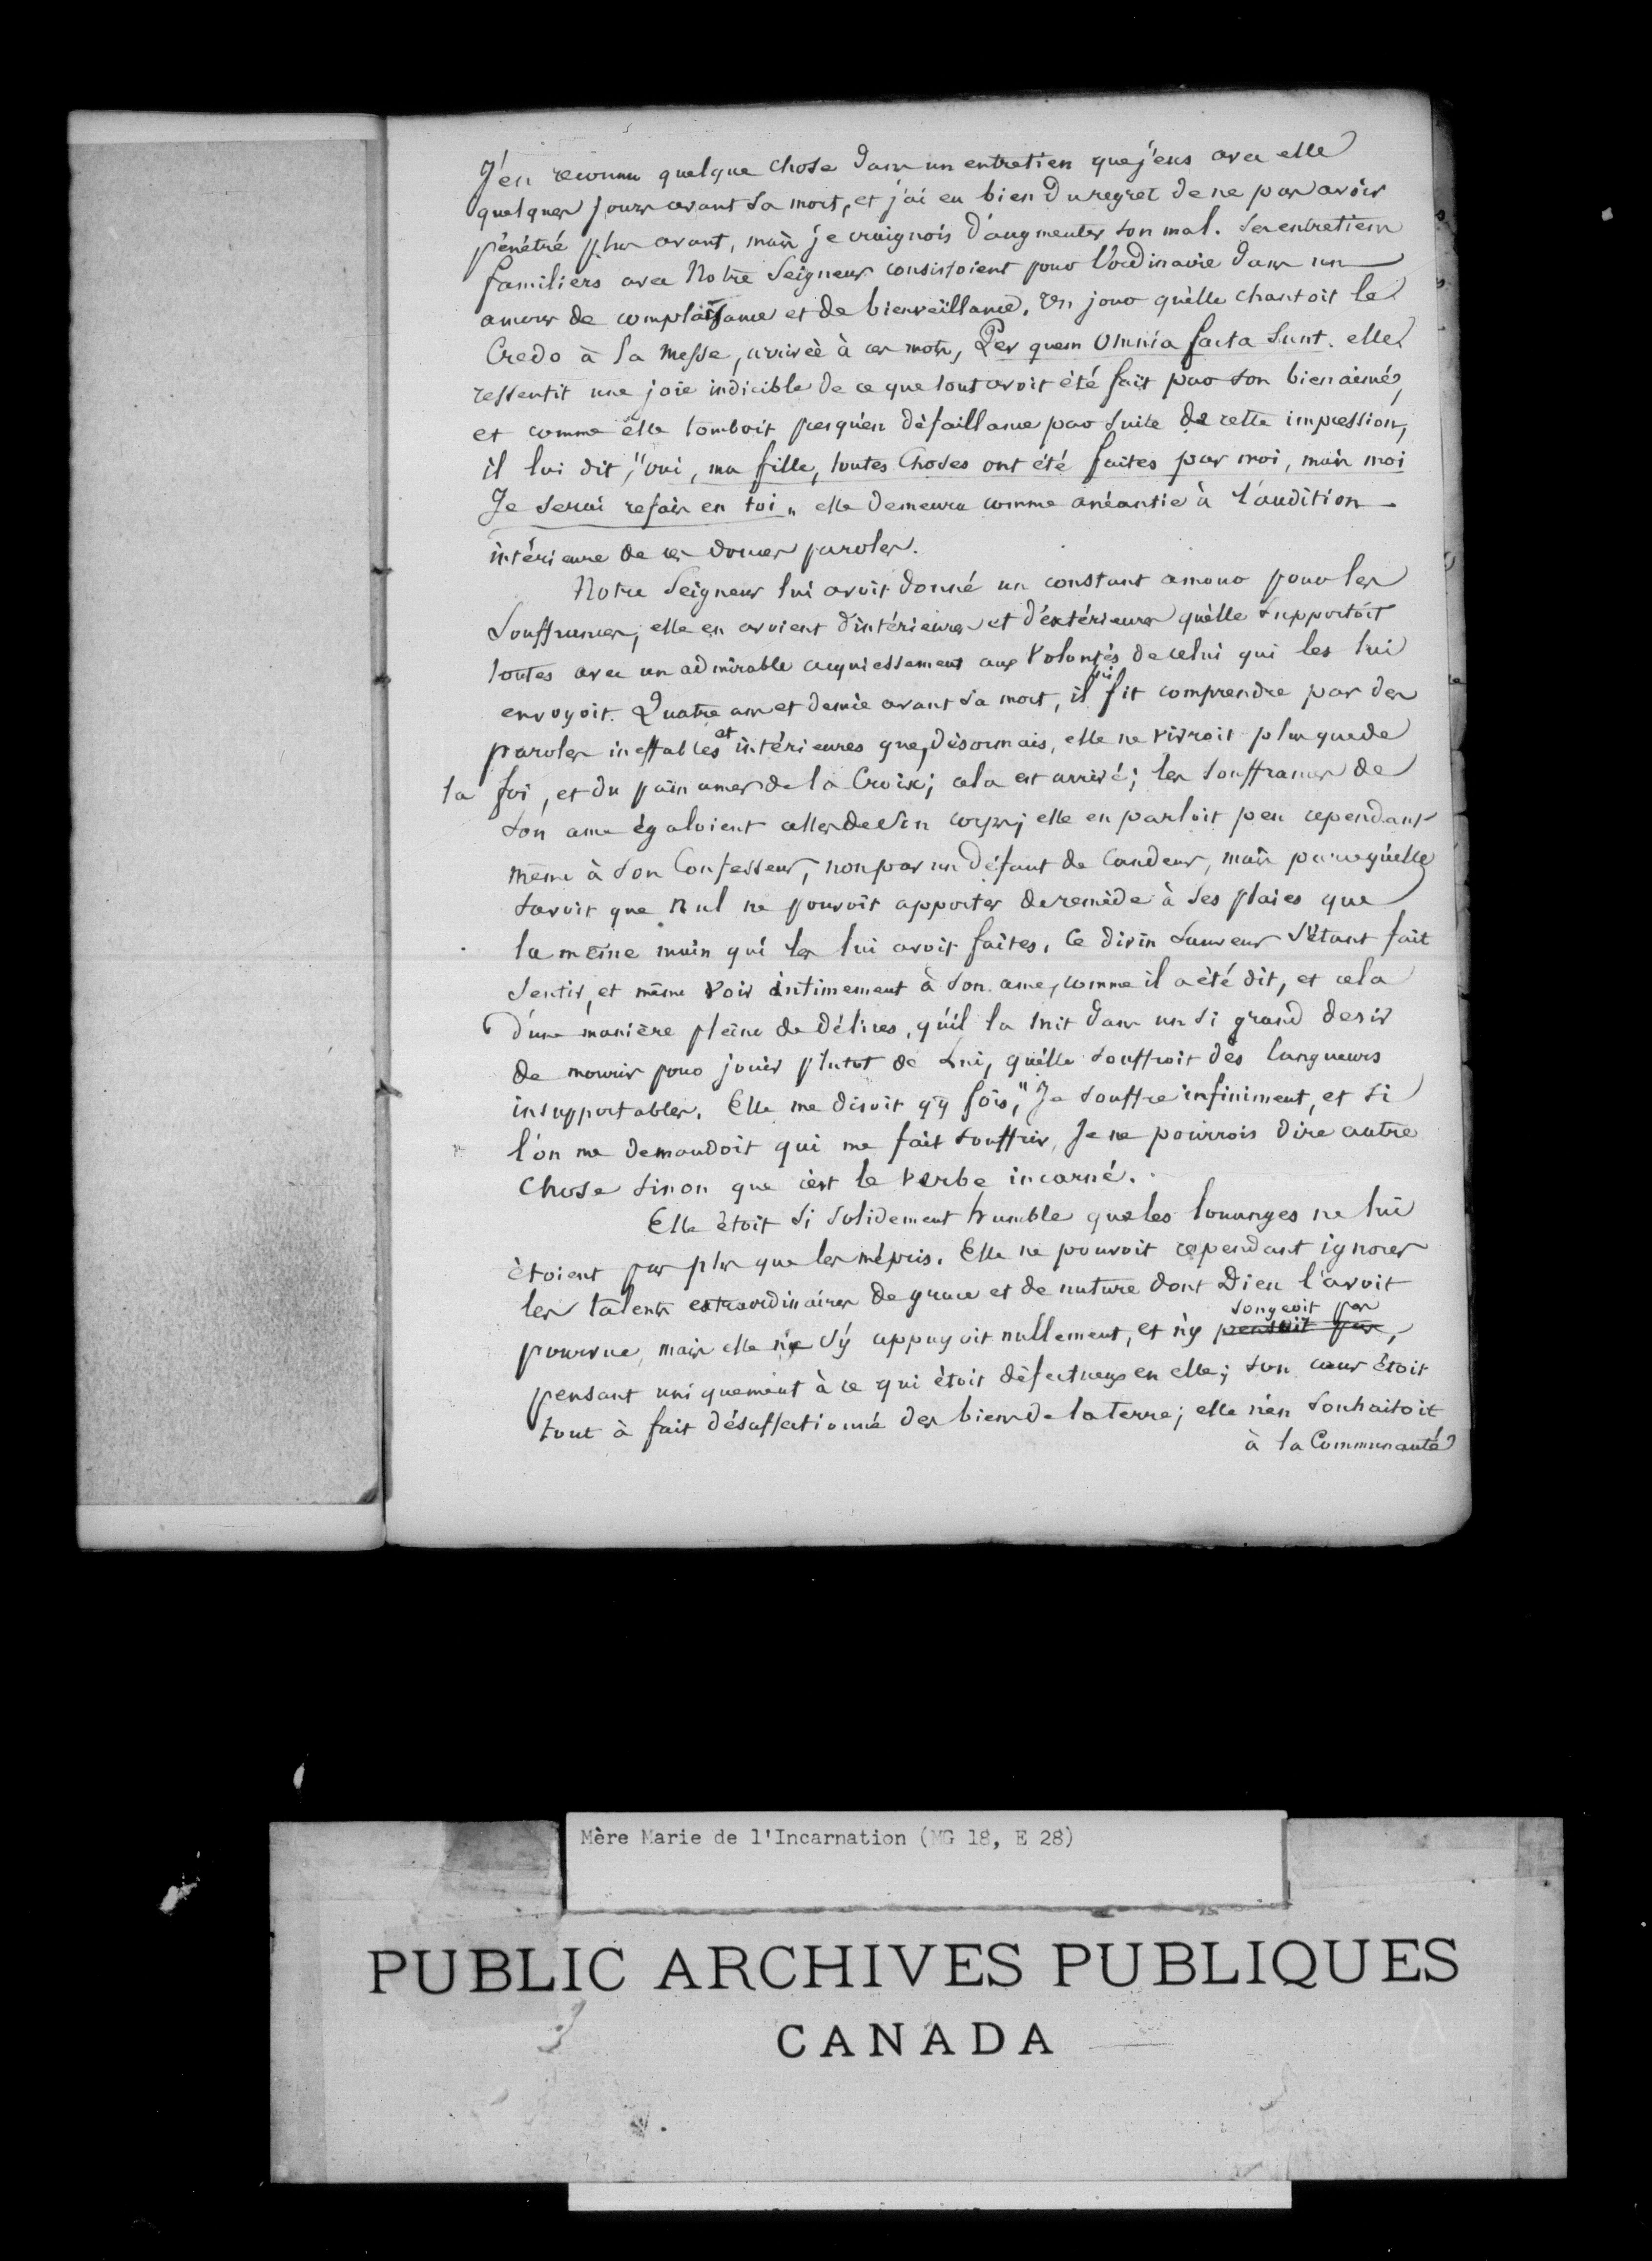 J'en reconnu quelque chose dans un entretien que j'eus avec elle
quelques jours avant sa mort, et j'ai eu bien du regret de ne pas avoir
pénétré plus avant, mais je craignois d'augmenter son mal. Ses entretiens
familiers avec Notre Seigneur consistoient pour l'ordinaire dans un
amour de complaisance et de bienveillance. Un jour qu'elle chantoit le
Credo à la Messe, arrivée à ces mots, Per quem Omnia facta Sunt. elle
ressentit une joie indicible de ce que tout avoit été fait par son bien aimé,
et comme elle tomboit presqu'en défaillance par suite de cette impression,
il lui dit, "oui, ma fille, toutes Choses ont été faites par moi, mais moi
Je serai refais en toi" elle demeura comme anéantie à l'audition
intérieure de ces douces paroles.
Notre Seigneur lui avoit donné un constant amour pour les
Souffrances, elle en avoient d'intérieures et d'extérieures qu'elle supportoit
toutes avec un admirable acquiessement aux Volontés de celui qui les lui
envoyoit. Quatre ans et demie avant sa mort, il lui fit comprendre par des
paroles ineffables et intérieures que, désormais, elle ne vivroit plus que de
la foi, et du pain amer de la Croix; cela est arrivé; les souffrances de
son ame égaloient celles de son corps; elle en parloit peu cependant
même à son Confesseur, non par un défaut de Candeur, mais parcequ'elle
savoit que nul ne pouvoit apporter de remède à ses plaies que
la même main qui les lui avoit faites. Ce divin Sauveur s'étant fait
sentir, et même voir intimement à son ame, comme il a été dit, et cela
d'une manière pleine de délices, qu'il la mit dans un si grand desir
de mourir pour jouir plutot de Lui, qu'elle souffroit des langueurs
insupportables. Elle me disoit qq fois, "Je souffre infiniment, et si
l'on me demandoit qui me fait souffrir, Je ne pourrois dire autre
Chose sinon que c'est le Verbe incarné.
Elle étoit si solidement humble que les louanges ne lui
étoient pas plus que les mépris. Elle ne pouvoit cependant ignorer
les talents extraordinaires de grace et de nature dont Dieu l'avoit
songeoit pas
pourvue, mais elle ne s'y appuyoit nullement, et n'y pensoit pas,
pensant uniquement à ce qui étoit défectueux en elle; son cœur étoit
tout à fait désaffectionné des biens de la terre; elle n'en souhaitoit
à la Communauté
Mère Marie de l'Incarnation (MG 18, E 28)
PUBLIC ARCHIVES PUBLIQUES
CANADA